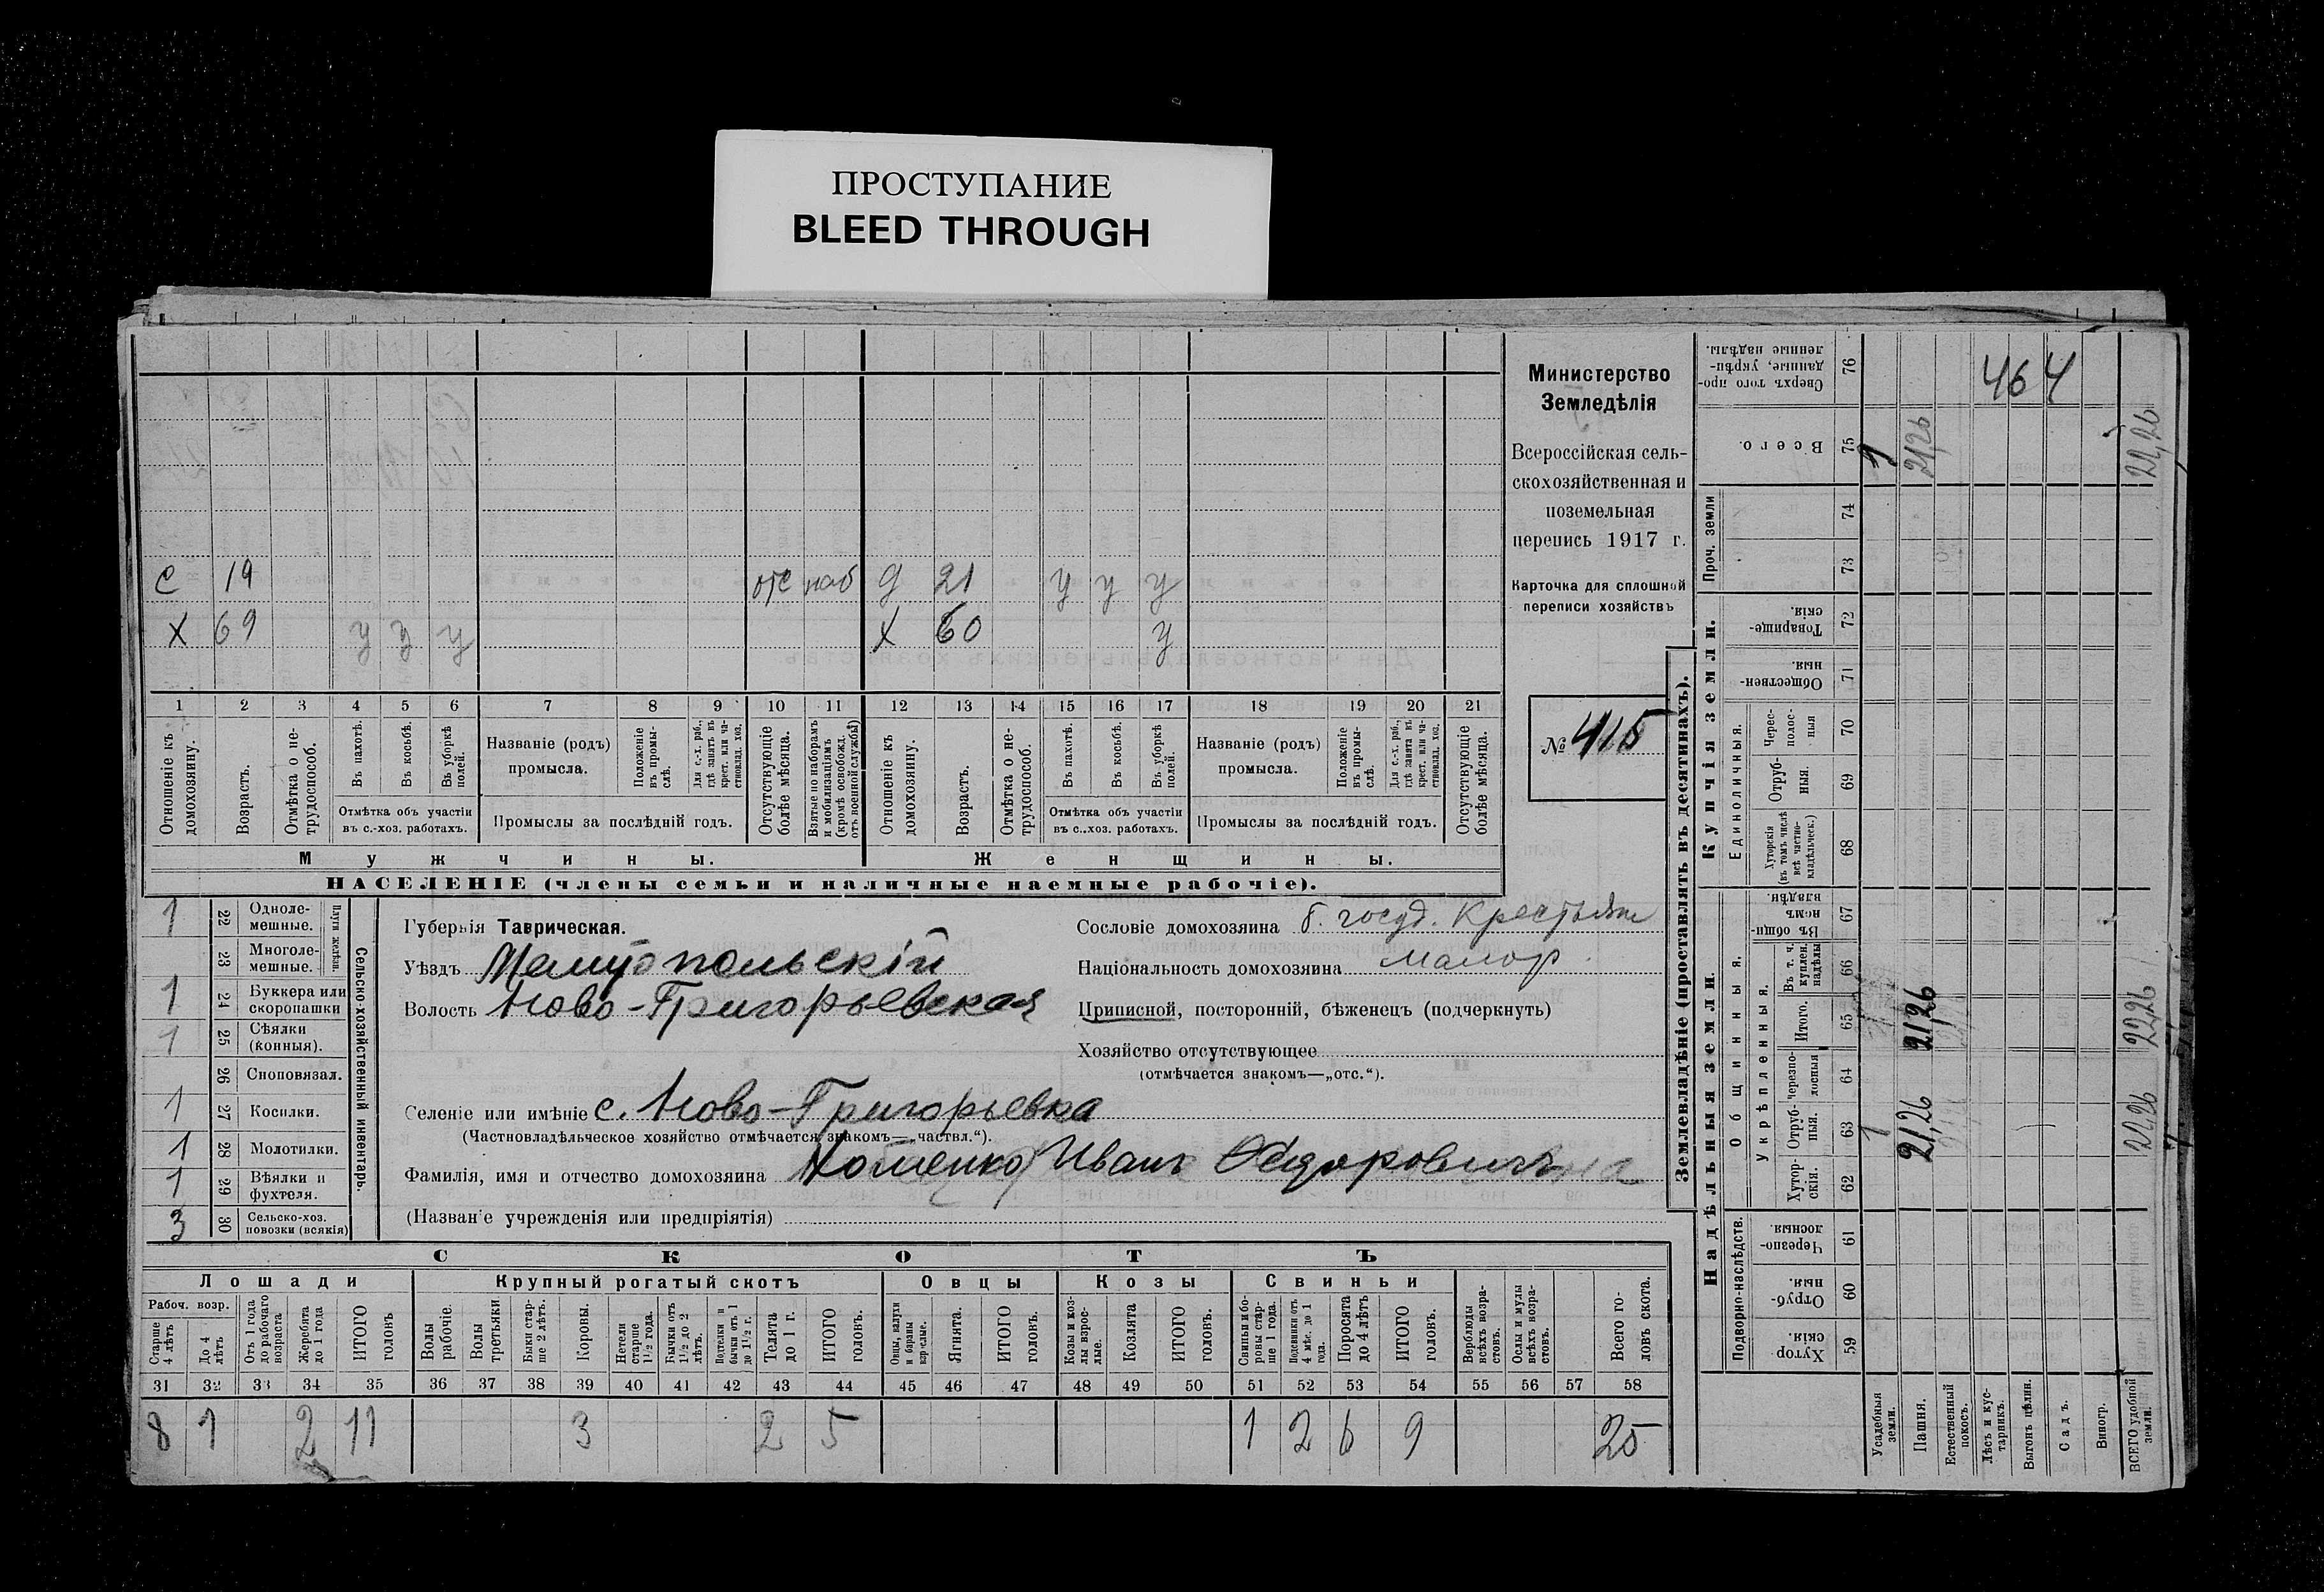 ПРОСТУПАНИЕ
BLEED THROUGH
Министерство
Земледѣлія
Всероссійская сель-
скохозяйственная и
поземельная
перепись 1917 г.
Карточка для сплошной
переписи хозяйствъ
№ 415
с 19 отс наб д 21 у у у
х 69 у у у х 60 у
1 2 3 4 5 6 7 8 9 10 11 12 13 14 15 16 17 18 19 20 21
Отношеніе къ домохозяину.
Возрастъ.
Отмѣтка о не-трудоспособ.
Въ пахотѣ.
Въ косьбѣ.
Въ уборкѣ полей.
Отмѣтка объ участіи
въ с.-хоз. работахъ.
Названіе (родъ)
промысла.
Положеніе въ промы-слѣ.
Для с.-х. раб., гдѣ занятъ въ крест. или ча-стновлад. хоз.
Промыслы за послѣдній годъ.
Отсутствующіе болѣе мѣсяца.
Взятые по наборамъ и мобилизаціямъ (кромѣ освобожд. отъ военной службы)
Отношеніе къ домохозяину.
Возрастъ.
Отмѣтка о не-трудоспособ.
Въ пахотѣ.
Въ косьбѣ.
Въ уборкѣ полей.
Отмѣтка объ участіи
въ с..хоз. работахъ.
Названіе (родъ)
промысла.
Положеніе въ промы-слѣ.
Для с.-х. раб., гдѣ занята въ крест. или ча-стновлад. хоз.
Промыслы за послѣдній годъ.
Отсутствующіе болѣе мѣсяца.
Мужчины. Женщины.
НАСЕЛЕНІЕ (члены семьи и наличные наемные рабочіе).
Сельско-хозяйственный инвентарь.
Плуги желѣзн.
1 22 Одноле-мешные.
23 Многоле-мешные.
1 24 Буккера или скоропашки
1 25 Сѣялки (конныя).
26 Сноповязал.
1 27 Косилки.
1 28 Молотилки.
1 29 Вѣялки и фухтеля.
3 30 Сельско-хоз. повозки (всякія)
Губернія Таврическая.
Уѣздъ Мелитопольскій
Волость Ново-Григорьевская
Селеніе или имѣніе с. Ново-Григорьевка
(Частновладѣльческое хозяйство отмѣчается знакомъ—„частвл.“).
Фамилія, имя и отчество домохозяина Хоменко Иванъ Ѳедоровичъ
(Названіе учрежденія или предпріятія)
Сословіе домохозяина б. госуд. крестьян
Національность домохозяина малор.
Приписной, посторонній, бѣженецъ (подчеркнуть)
Хозяйство отсутствующее
(отмѣчается знакомъ—„отс.“).
СКОТЪ
Лошади Крупный рогатый скотъ Овцы Козы Свиньи
Рабоч. возр.
Старше 4 лѣтъ
До 4 лѣтъ
Отъ 1 года до рабочаго возраста
Жеребята до 1 года
ИТОГО головъ
Волы рабочіе.
Волы третьяки
Быки стар-ше 2 лѣтъ.
Коровы.
Нетели старше 1½ года.
Бычки отъ 1½ до 2 лѣтъ.
Подтелки и бычки отъ 1 до 1½ г.
Телята до 1 г.
ИТОГО головъ.
Овцы, валухи и бараны взрослые.
Ягнята.
ИТОГО головъ.
Козы и коз-лы взрос-лые.
Козлята
ИТОГО головъ.
Свиньи и бо-ровы стар-ше 1 года.
Подсвинки отъ 4 мѣс. до 1 года.
Поросята до 4 лѣтъ
ИТОГО головъ.
Верблюды всѣхъ возра-стовъ.
Ослы и мулы всѣхъ возра-стовъ.
Всего го-ловъ скота.
31 32 33 34 35 36 37 38 39 40 41 42 43 44 45 46 47 48 49 50 51 52 53 54 55 56 57 58
8 1 2 11 3 2 5 1 2 6 9 25
Землевладѣніе (проставлять въ десятинахъ).
Надѣльныя земли.
Купчія земли.
Проч. земли
Подворно-наслѣдств.
Общинныя.
Укрѣпленныя.
Единоличныя.
Хутор-скія. 59
Отруб-ныя. 60
Черезпо-лосныя. 61
Хутор-скія. 62
Отруб-ныя. 63
Черезпо-лосныя 64
Итого. 65
Въ т. ч. куплен. надѣлы 66
Въ общи-номъ владѣн. 67
Хуторскія (въ томъ числѣ всѣ частно-владѣльческ.) 68
Отруб-ныя. 69
Черес-полос-ныя 70
Обществен-ныя. 71
Товарище-скія. 72
73
74
Всего. 75
Сверхъ того про-данные, укрѣп-ленные надѣлы. 76
Усадебныя земли. 1
Пашня. 21,26 21,26 21,26
Естественный покосъ.
Лѣсъ и кус-тарникъ.
Выгонъ цѣлин.
Садъ.
Виногр.
ВСЕГО удобной земли. 22,26 22,26 22,26
464